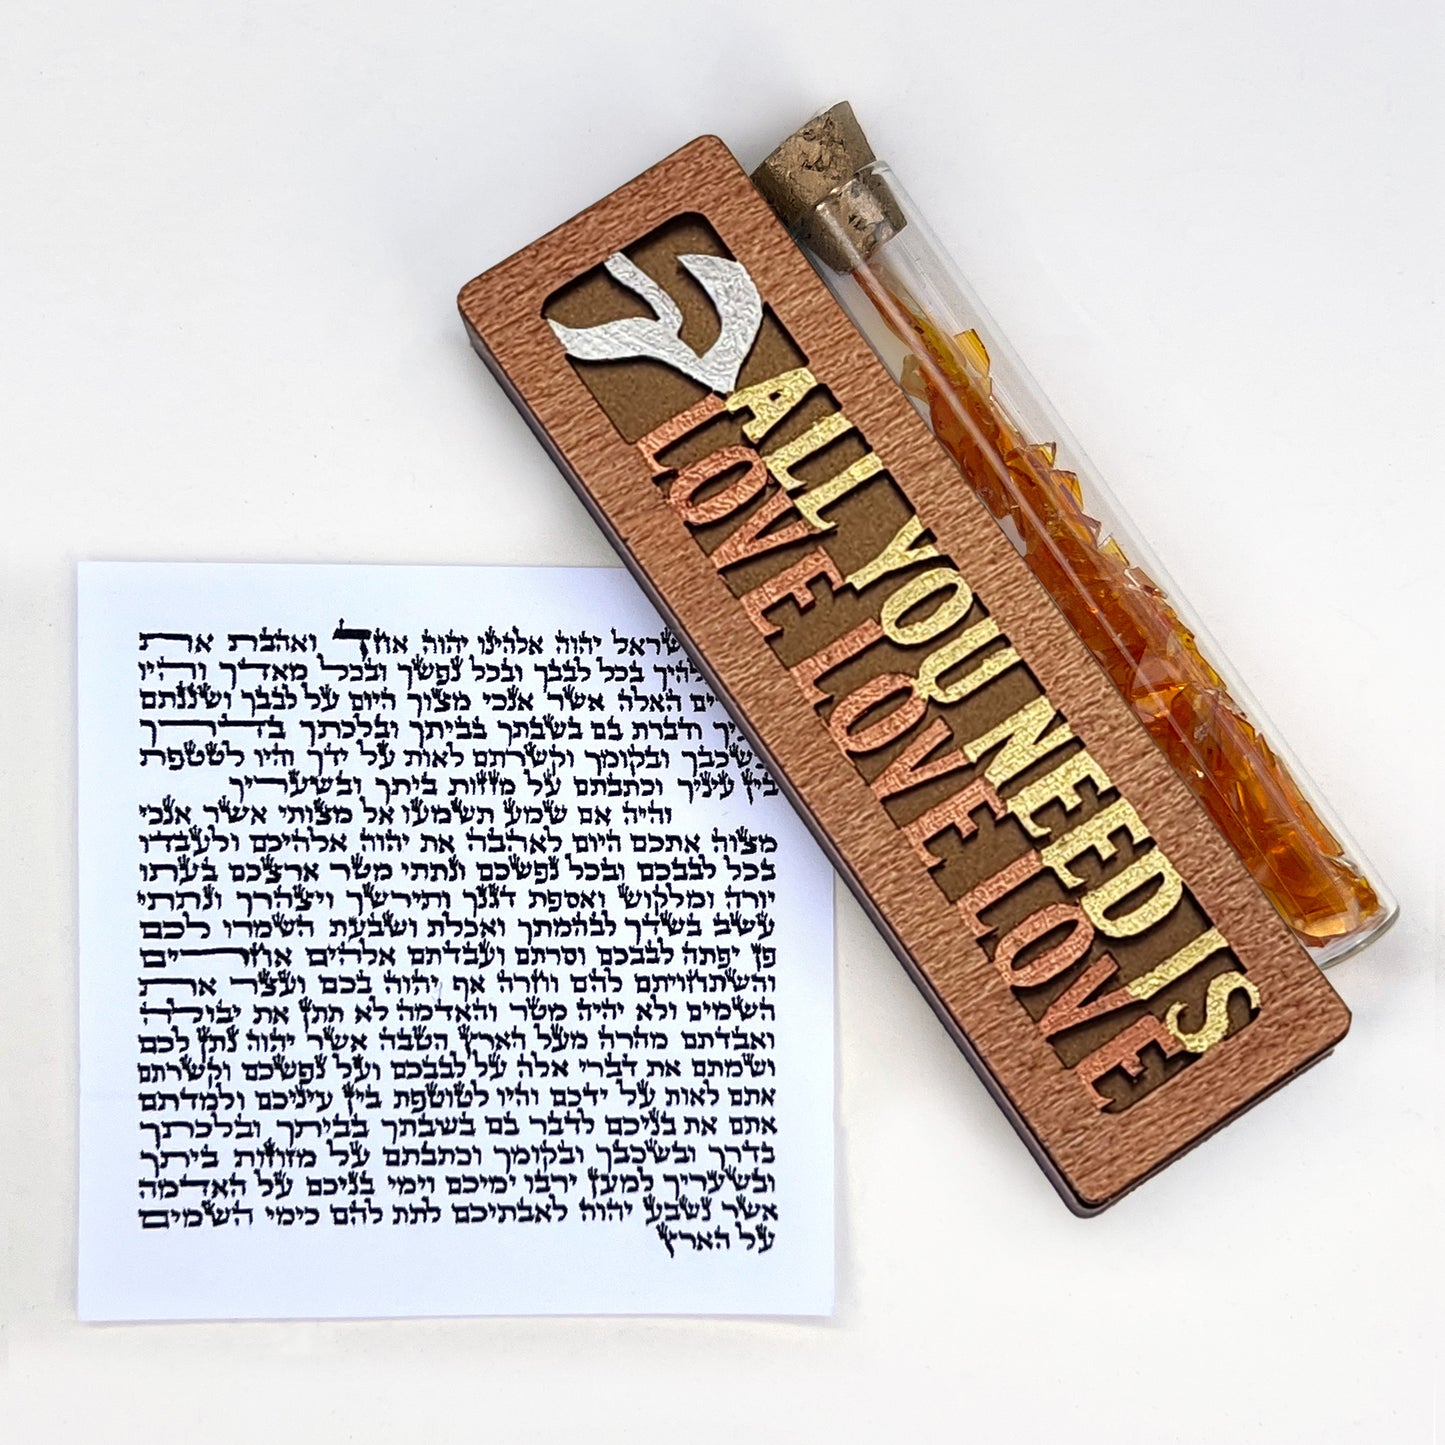 ש
ALL YOU NEED IS
LOVE LOVE LOVE LOVE
ישראל יהוה אלהינו יהוה אחד ואהבת את
בכל לבבך ובכל נפשך ובכל מאדך והיו
האלה אשר אנכי מצוך היום על לבבך ושננתם
ודברת בם בשבתך בביתך ובלכתך בדרך
ובקומך וקשרתם לאות על ידך והיו לטטפת
בין עיניך וכתבתם על מזזות ביתך ובשעריך
והיה אם שמע תשמעו אל מצותי אשר אנכי
מצוה אתכם היום לאהבה את יהוה אלהיכם ולעבדו
בכל לבבכם ובכל נפשכם ונתתי מטר ארצכם בעתו
יורה ומלקוש ואספת דגנך ותירשך ויצהרך ונתתי
עשב בשדך לבהמתך ואכלת ושבעת השמרו לכם
פן יפתה לבבכם וסרתם ועבדתם אלהים אחרים
והשתחויתם להם וחרה אף יהוה בכם ועצר את
השמים ולא יהיה מטר והאדמה לא תתן את יבולה
ואבדתם מהרה מעל הארץ הטבה אשר יהוה נתן לכם
ושמתם את דברי אלה על לבבכם ועל נפשכם וקשרתם
אתם לאות על ידכם והיו לטוטפת בין עיניכם ולמדתם
אתם את בניכם לדבר בם בשבתך בביתך ובלכתך
בדרך ובשכבך ובקומך וכתבתם על מזוזות ביתך
ובשעריך למען ירבו ימיכם וימי בניכם על האדמה
אשר נשבע יהוה לאבתיכם לתת להם כימי השמים
על הארץ